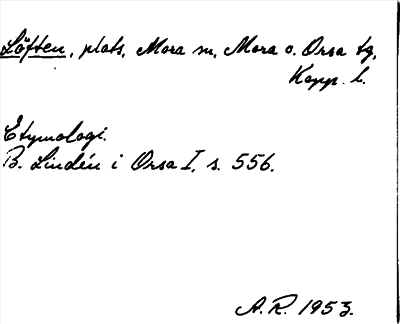 Löften, plats, Mora sn, Mora o. Orsa tg,
Kopp. l.
Etymologi.
B. Lindén i Orsa I, s. 556.
A. R. 1953.